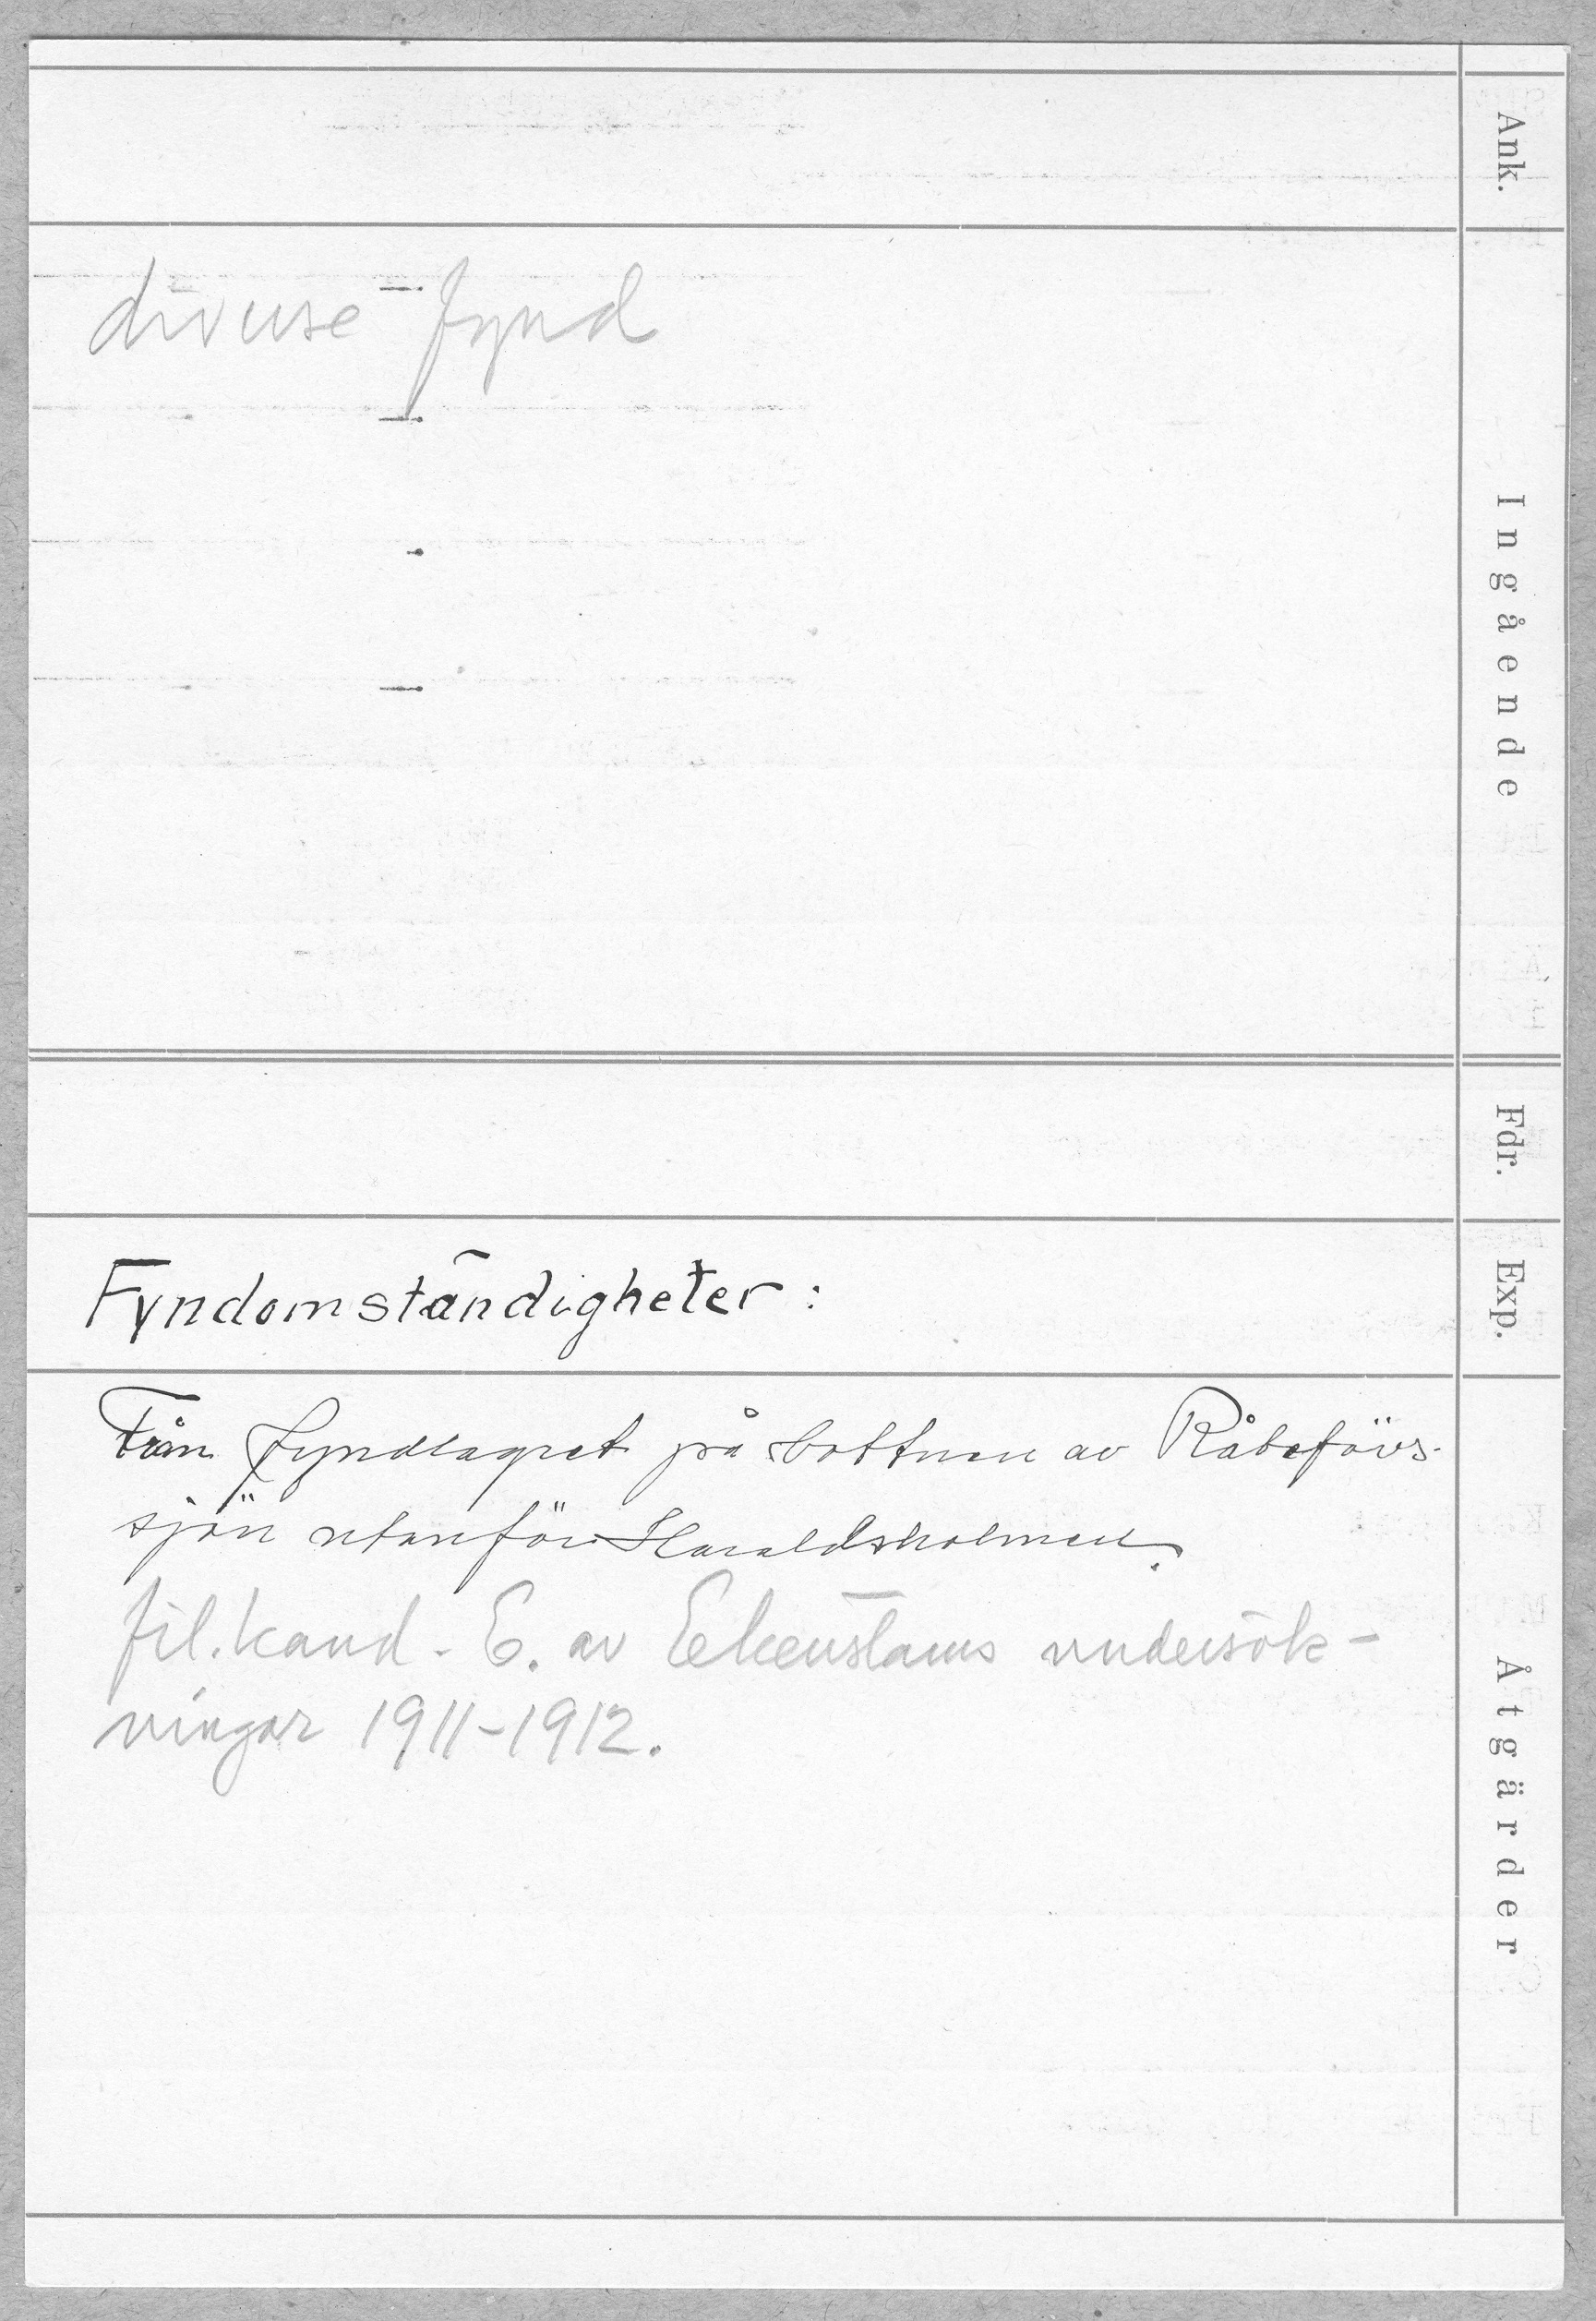 Ank.
diverse fynd
Ingående
Fdr.
Fyndomständigheter:
Exp.
Från fyndlagret på bottnen av Råbelövs-
sjön utanför Haraldsholmen.
fil. kand. E. av Ekenstams undersök-
ningar 1911-1912.
Åtgärder